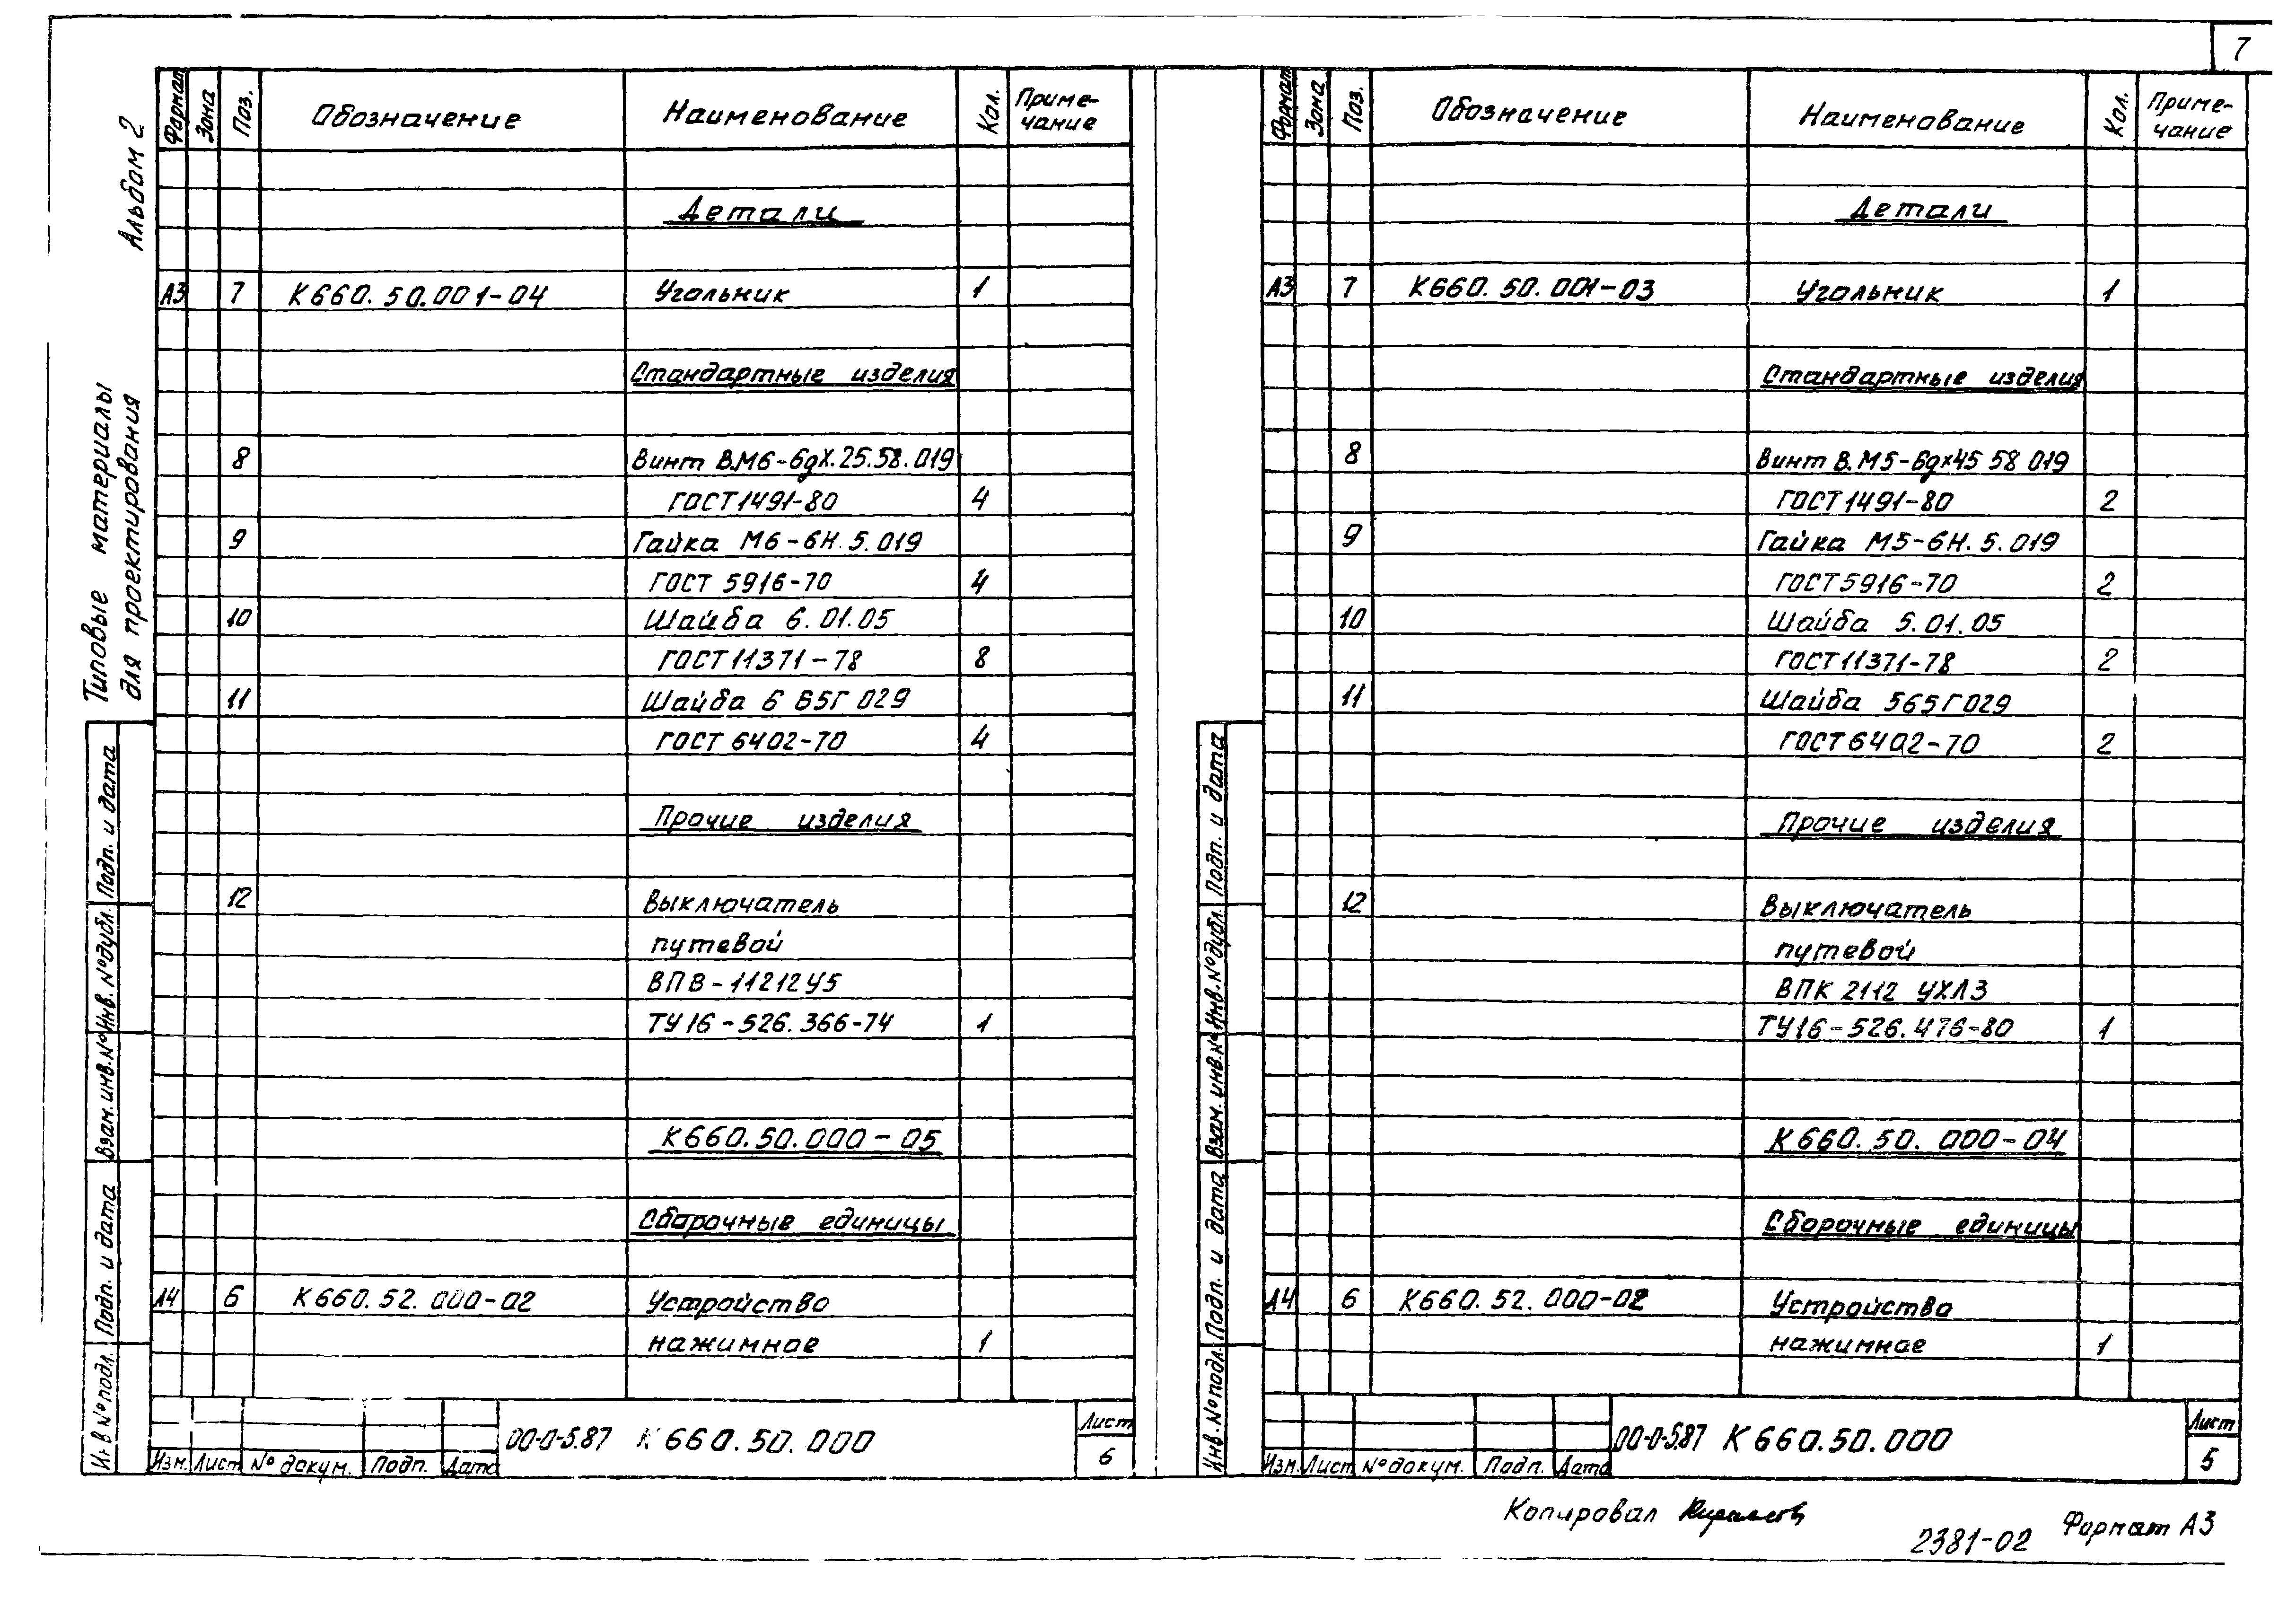 7
Альбом 2
Типовые материалы
для проектирования
Формат Зона Поз. Обозначение Наименование Кол. Приме-
чание
Детали
А3 7 К660.50.001-04 Угольник 1
Стандартные изделия
8 Винт В.М6-6gх.25.58.019
ГОСТ 1491-80 4
9 Гайка М6-6Н.5.019
ГОСТ 5916-70 4
10 Шайба 6.01.05
ГОСТ 11371-78 8
11 Шайба 6 65Г 029
ГОСТ 6402-70 4
Прочие изделия
12 Выключатель
путевой
ВПВ-11212У5
ТУ16-526.366-74 1
К660.50.000-05
Сборочные единицы
А4 6 К660.52.000-02 Устройство
нажимное 1
Подп. и дата
Инв. № дубл.
Взам. инв. №
Подп. и дата
Инв № подл.
Изм. Лист № докум. Подп. Дата
00-0-5.87 К660.50.000
Лист
6
Формат Зона Поз. Обозначение Наименование Кол. Приме-
чание
Детали
А3 7 К660.50.001-03 Угольник 1
Стандартные изделия
8 Винт В.М5-6gх45 58 019
ГОСТ 1491-80 2
9 Гайка М5-6Н.5.019
ГОСТ 5916-70 2
10 Шайба 5.01.05
ГОСТ 11371-78 2
11 Шайба 565Г029
ГОСТ 6402-70 2
Прочие изделия
12 Выключатель
путевой
ВПК 2112 УХЛ3
ТУ16-526.476-80 1
К660.50.000-04
Сборочные единицы
А4 6 К660.52.000-02 Устройство
нажимное 1
Подп. и дата
Инв. № дубл.
Взам. инв. №
Подп. и дата
Инв. № подл.
Изм. Лист № докум. Подп. Дата
00-0-5.87 К660.50.000
Лист
5
Копировал
2381-02
Формат А3